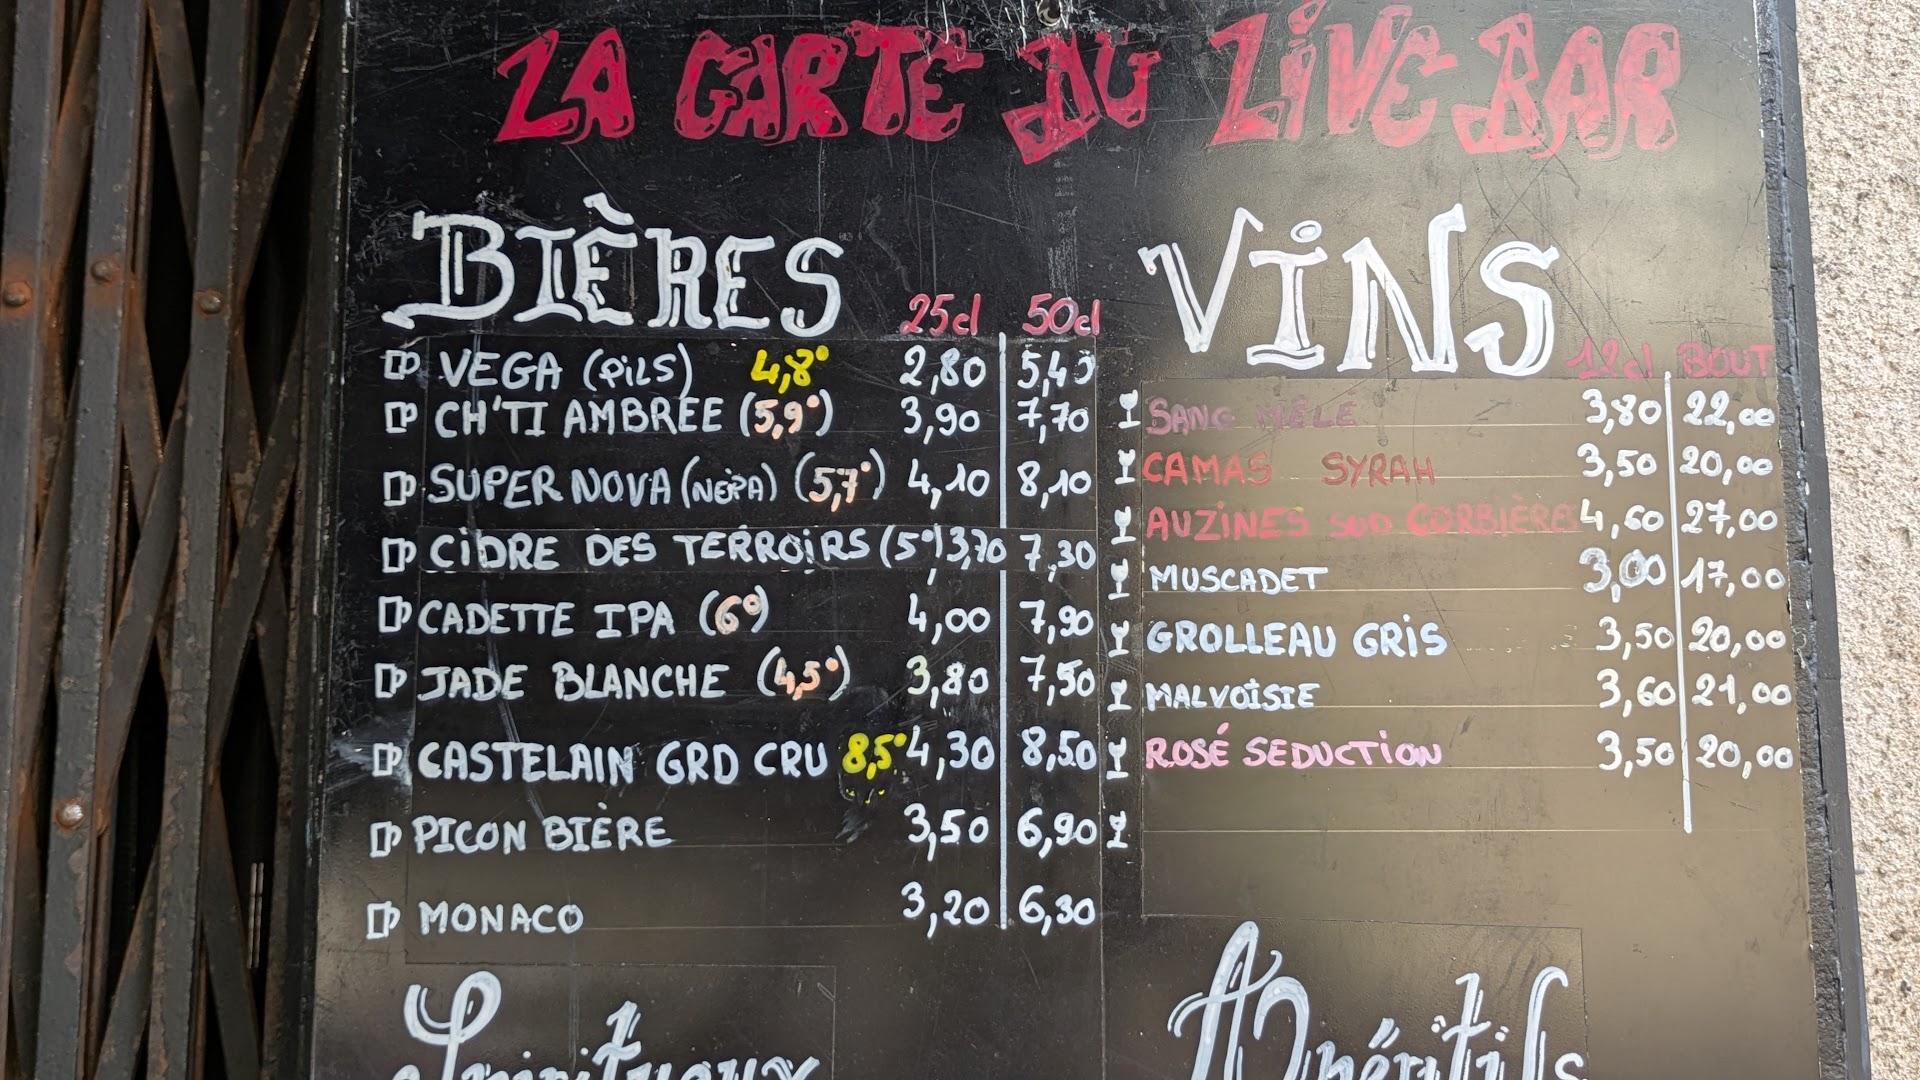 LA CARTE DU LIVE BAR
BIÈRES 25cl 50cl
VEGA (PILS) 4,8° 2,80 5,40
CH'TI AMBRÉE (5,9°) 3,90 7,70
SUPER NOVA (NEIPA) (5,7°) 4,10 8,10
CIDRE DES TERROIRS (5°) 3,70 7,30
CADETTE IPA (6°) 4,00 7,90
JADE BLANCHE (4,5°) 3,80 7,50
CASTELAIN GRD CRU 8,5° 4,30 8,50
PICON BIÈRE 3,50 6,90
MONACO 3,20 6,30
VINS 12cl BOUT
SANG MÊLÉ 3,80 22,00
CAMAS SYRAH 3,50 20,00
AUZINES SUD CORBIÈRES 4,60 27,00
MUSCADET 3,00 17,00
GROLLEAU GRIS 3,50 20,00
MALVOISIE 3,60 21,00
ROSÉ SEDUCTION 3,50 20,00
Spiritueux
Apéritifs